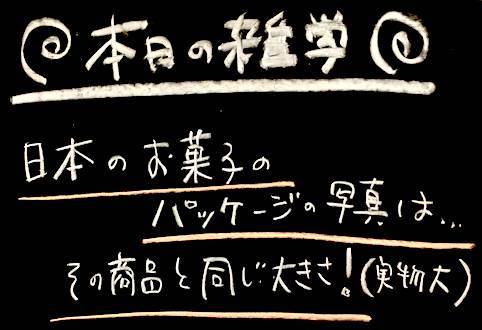 本日の雑学
日本のお菓子の
パッケージの写真は...
その商品と同じ大きさ!(実物大)